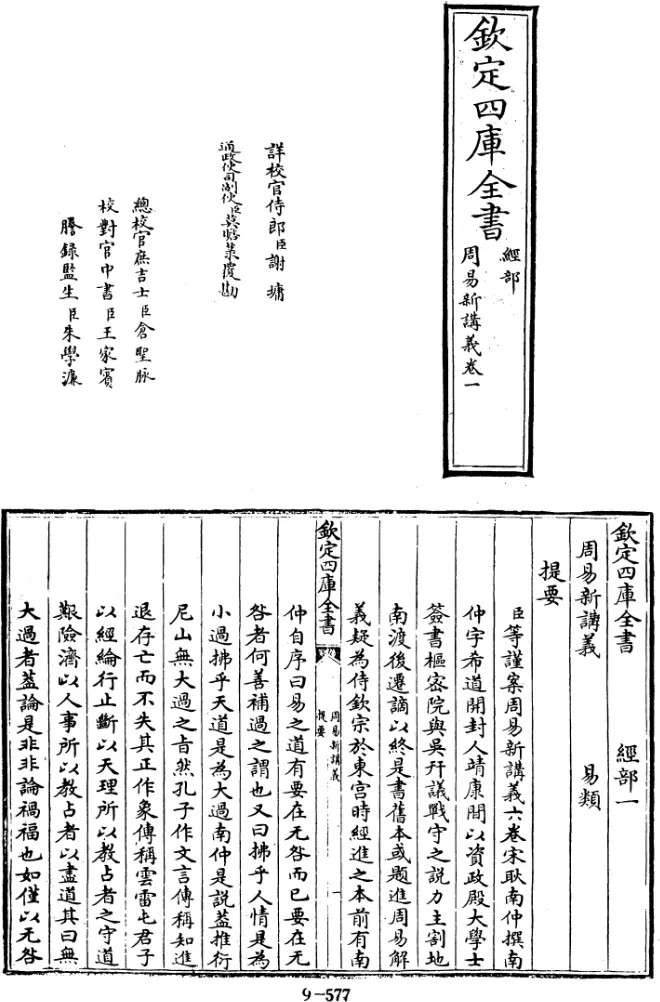 欽定四庫全書
經部
周易新講義卷一
詳校官侍郎臣謝墉
通政使司副使臣莫瞻菉覆勘
總校官庶吉士臣倉聖脉
校對官中書臣王家賓
謄錄監生臣朱學濂
欽定四庫全書 經部一
周易新講義 易類
提要
臣等謹案周易新講義六卷宋耿南仲撰南
仲字希道開封人靖康間以資政殿大學士
簽書樞密院與吳幵議戰守之說力主割地
南渡後遷謫以終是書舊本或題進周易解
義疑為侍欽宗於東宮時經進之本前有南
欽定四庫全書
周易新講義
提要
一
仲自序曰易之道有要在无咎而已要在无
咎者何善補過之謂也又曰拂乎人情是為
小過拂乎天道是為大過南仲是說蓋推衍
尼山無大過之旨然孔子作文言傳稱知進
退存亡而不失其正作象傳稱雲雷屯君子
以經綸行止斷以天理所以教占者之守道
艱險濟以人事所以教占者以盡道其曰無
大過者蓋論是非非論禍福也如僅以无咎
9-577